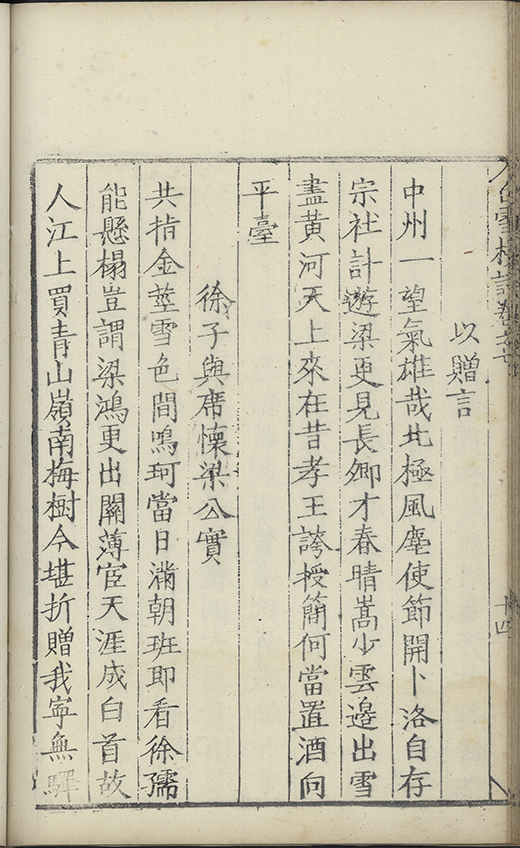 白雪樓詩卷之六
十四
以贈言
中州一望氣雄哉北極風塵使節開卜洛自存
宗社計遊梁更見長卿才春晴嵩少雲邊出雪
盡黃河天上來在昔孝王誇授簡何當置酒向
平臺
徐子與席懷梁公實
共指金莖雪色間鳴珂當日滿朝班即看徐孺
能懸榻豈謂梁鴻更出關薄宦天涯成白首故
人江上買青山嶺南梅樹今堪折贈我寧無驛